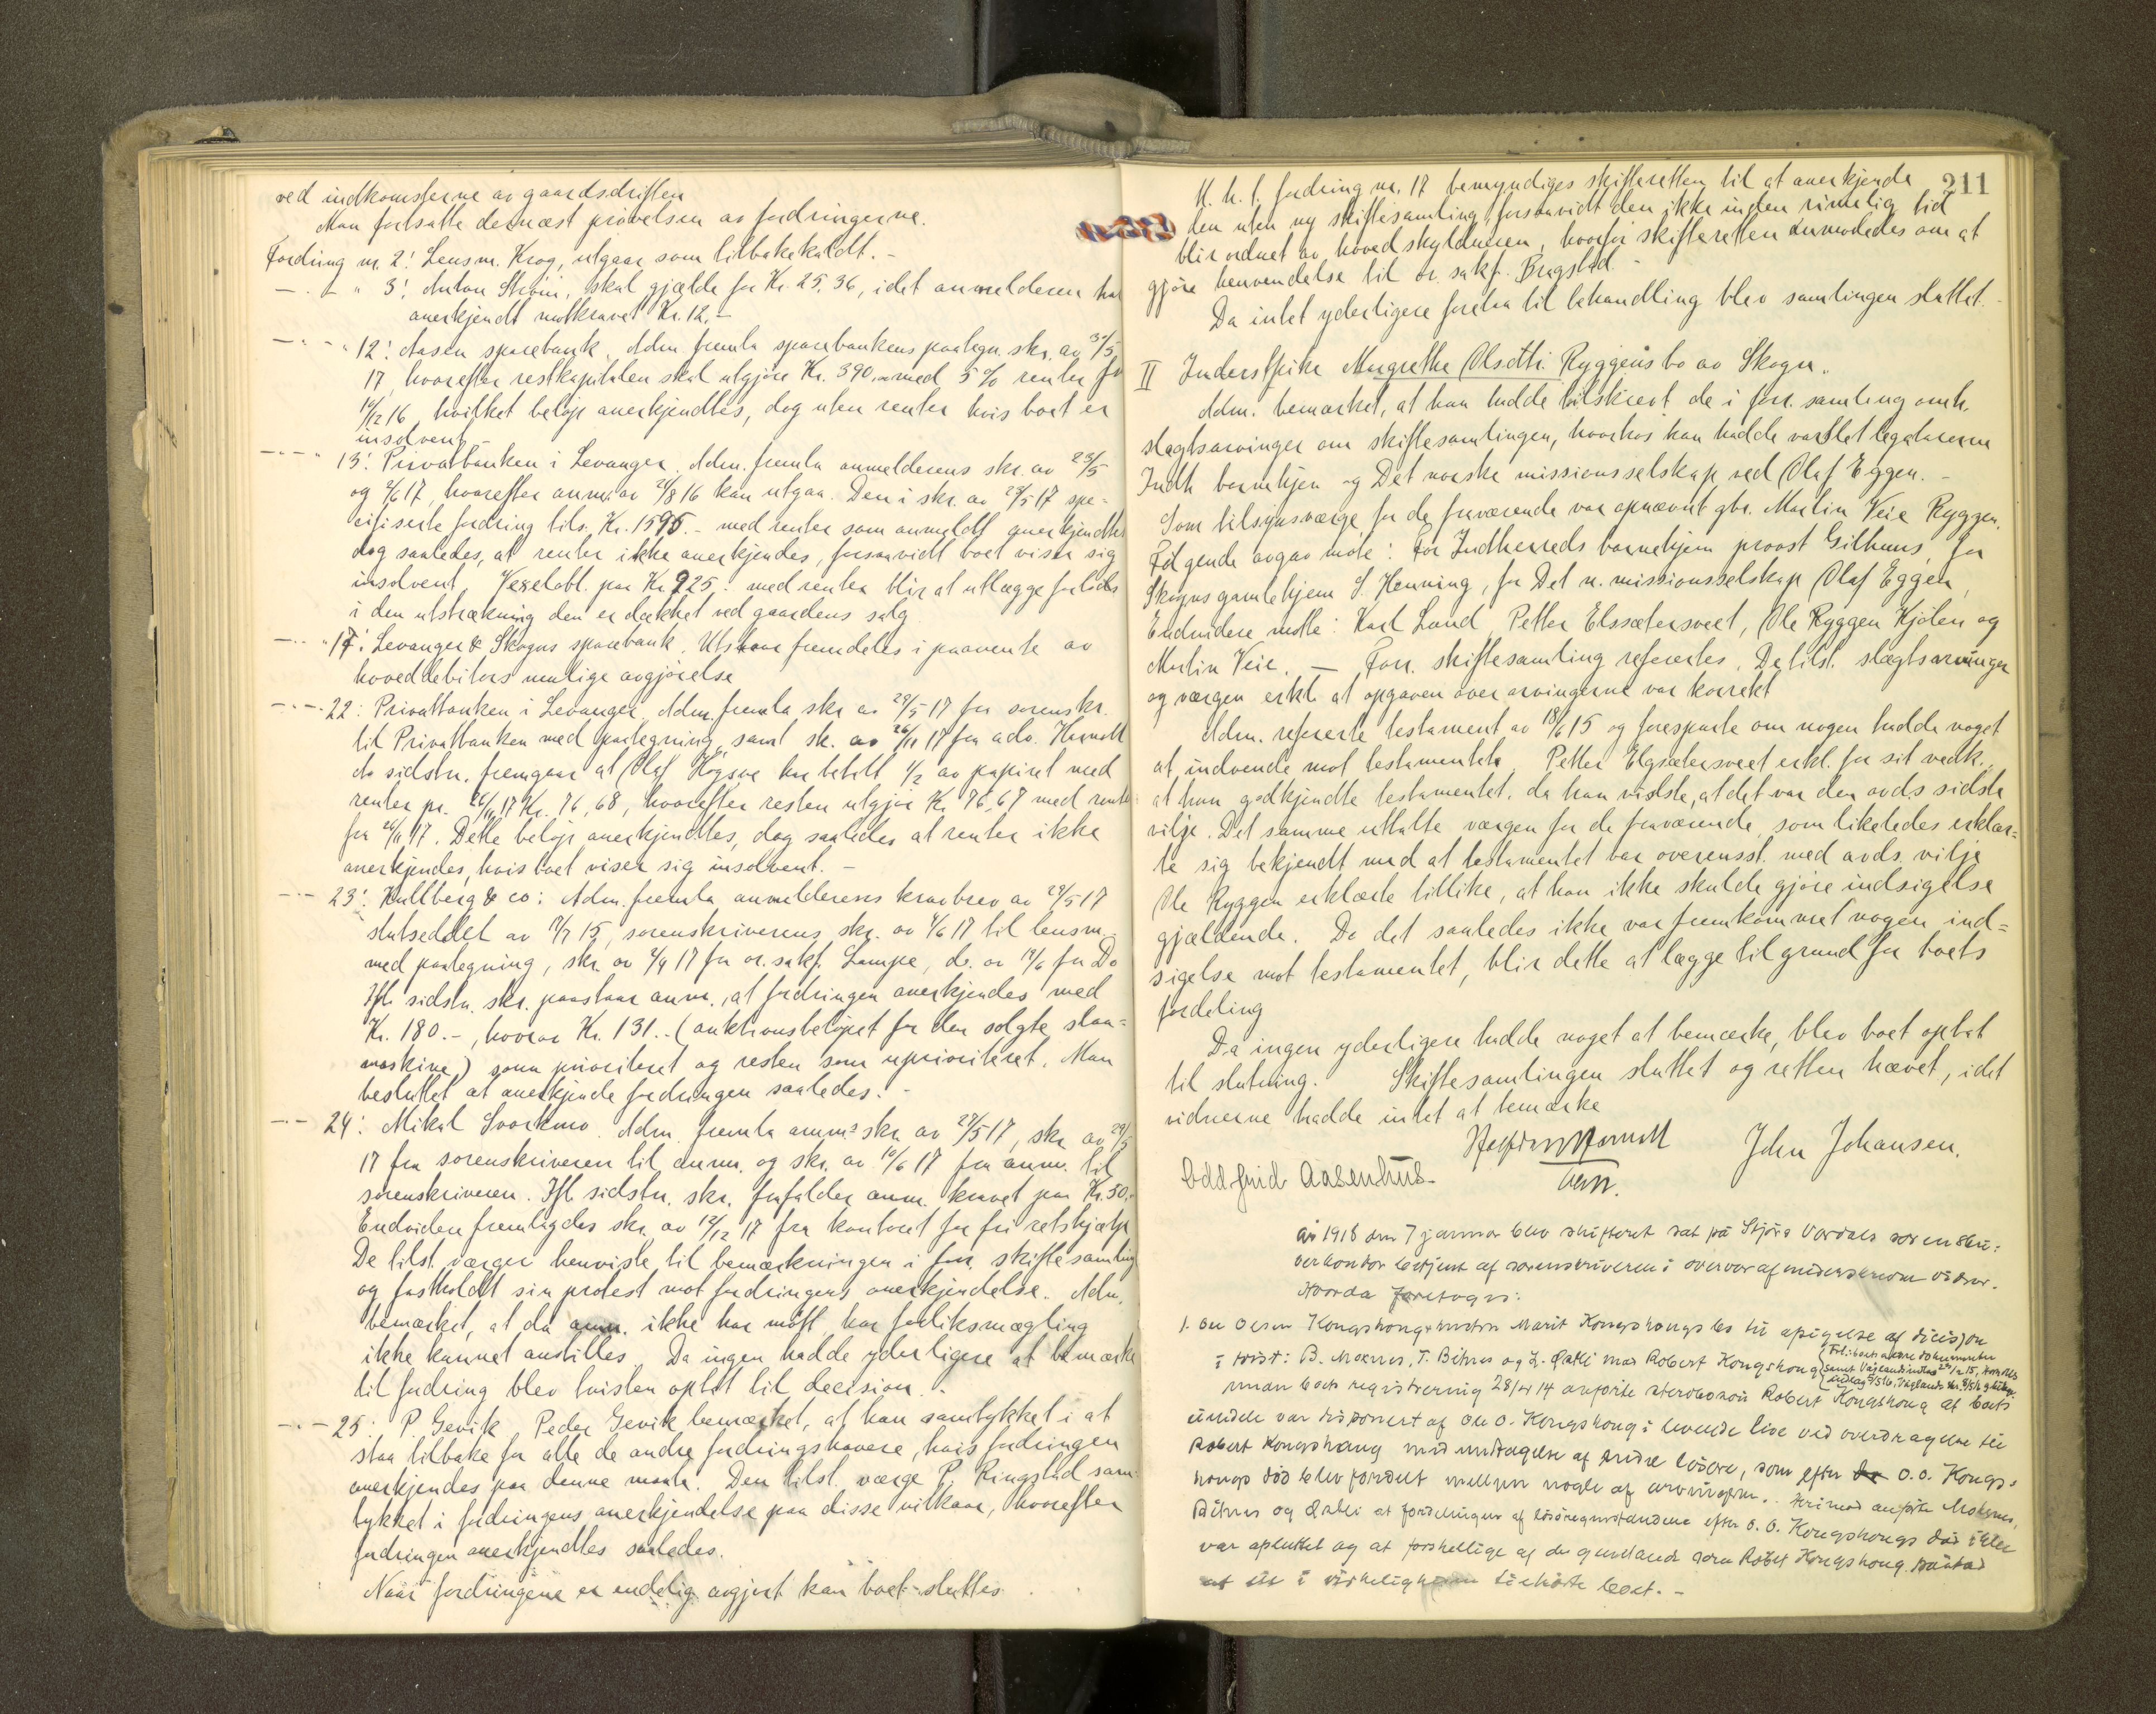 ved indkomsterne av gaardsdriften
Man fortsatte dernæst prøvelsen av fordringerne.
Fordring nr. 2: Lensm. Krog, utgaar som tilbakekaldt. -
— " — " 3: Anton Strøm, skal gjælde for Kr. 25,36, idet anmelderen har
anerkjendt motkravet Kr. 12.-
— " — " 12: Aasen sparebank. Adm. fremla sparebankens paategn. skr. av 30/5
17, hvorefter restkapitalen skal utgjøre Kr. 390,00 med 5% renter fra
14/12 16, hvilket beløp anerkjendtes, dog uten renter hvis boet er
insolvent. -
— " — " 13: Privatbanken i Levanger. Adm. fremla anmelderens skr. av 23/5
og 2/6 17, hvorefter anm. av 24/8 16 kan utgaa. Den i skr. av 23/5 17 spe-
cifiserte fordring tils. Kr. 1595.- med renter som anmeldt anerkjendtes
dog saaledes, at renter ikke anerkjendes, forsaavidt boet viser sig
insolvent. Vexelobl. paa Kr. 925,- med renter blir at utlægge forlods
i den utstrækning den er dækket ved gaardens salg
— " — " 17: Levanger & Skogns sparebank. Utstaar fremdeles i paavente av
hoveddebitors mulige avgjørelse
— " — " 22: Privatbanken i Levanger. Adm. fremla skr. av 29/5 17 fra sorenskr.
til Privatbanken med paategning, samt sk. av 26/11 17 fra adv. Harnoll
da sidstn. fremgaar at Olaf Høgsve har betalt 1/2 av papiret med
renter pr. 26/11 17 Kr. 76,68, hvorefter resten utgjør Kr. 76,67 med renter
fra 26/11 17. Dette beløp anerkjendtes, dog saaledes at renter ikke
anerkjendes, hvis boet viser sig insolvent. -
— " — 23: Kullberg & co: Adm. fremla anmelderenes kravbrev av 29/5 17
slutseddel av 17/7 15, sorenskriverens skr. av 4/6 17 til lensm.
med paategning, skr. av 2/9 17 fra or. sakf. Lampe, do. av 12/6 fra Do
Ifl. sidstn. skr. paastaar anm., at fordringen anerkjendes med
Kr. 180.-, hvorav Kr. 131.- (auktionsbeløpet for den solgte slaa-
maskine) som prioritert og resten som uprioritert. Man
besluttet at anerkjende fordringen saaledes. -
— " — 24: Mikal Svorkmo. Adm. fremla anm.s skr. av 27/5 17, skr. av 29/5
17 fra sorenskriveren til anm. og skr. av 10/6 17 fra anm. til
sorenskriveren. Ifl. sidstn. skr. frafalder anm. kravet paa Kr. 50.-
Endvidere fremlagdes skr. av 12/12 17 fra kontoret for fri retshjælp
De tilst. værger henviste til bemærkningen i forr. skiftesamling
og fastholdt sin protest mot fordringens anerkjendelse. Adm.
bemærket, at da anm. ikke har møtt, har forliksmægling
ikke kunnet anstilles. Da ingen hadde yderligere at bemærke
til fordring blev tvisten optat til decision. -
— " — 25: P. Gevik. Peder Gevik bemærket, at han samtykket i at
staa tilbake for alle de andre fordringshavere, hvis fordringen
anerkjendes paa denne maate. Den tilst. værge P. Ringstad sam-
tykket i fordringens anerkjendelse paa disse vilkaar, hvorefter
fordringen anerkjendtes saaledes.
Naar fordringene er endelig avgjort kan boet sluttes.
211
M. h. t. fordring nr. 17 bemyndiges skifteretten til at anerkjende
den uten ny skiftesamling, forsaavidt den ikke inden rimelig tid
blir ordnet av hovedskyldneren, hvorfor skifteretten anmodedes om at
gjøre henvendelse til or. sakf. Bragstad. -
Da intet yderligere forelaa til behandling blev samlingen sluttet. -
II Inderstpike Margrethe Olsdtr. Ryggens bo av Skogn.
Adm. bemærket, at han hadde tilskrevt de i forr. samling omh.
slegtsarvinger om skiftesamlingen, hvorhos han hadde varslet legatarerne
Indh. barnehjem og Det norske missionsselskap ved Olaf Eggen. -
Som tilsynsværge for de fraværende var opnævnt gbr. Martin Veie Ryggen.
Følgende avgav møte: For Indherreds barnehjem provst Gilhuus, for
Skogns gamlehjem S. Henning, for Det n. missionsselskap Olaf Eggen,
Endvidere møtte Karl Lund, Petter Elssætersveet, Ole Ryggen Kjølen og
Martin Veie. — Forr. skiftesamling refereres. De tilst. slægtsarvinger
og værgen erkl. at opgaven over arvingerne var korrekt
Adm. refererte testament av 18/6 15 og forespurte om nogen hadde noget
at indvende mot testamentet. Petter Elgsætersveet erkl. for sit vedk.,
at han godkjendte testamentet, da han visste, at det var den avds. sidste
vilje. Det samme uttalte værgen for de fraværende, som likeledes erklær-
te sig bekjendt med at testamentet var overensst. med avds. vilje
Ole Ryggen erklærte tillike, at han ikke skulde gjøre indsigelse
gjældende. Da det saaledes ikke var fremkommet nogen ind-
sigelse mot testamentet, blir dette at lægge til grund for boets
fordeling
Da ingen yderligere hadde noget at bemærke, blev boet optat
til slutning. Skiftesamlingen sluttet og retten hævet, idet
vidnerne hadde intet at bemærke
John Johansen.
Oddfrid Aasenhus
År 1918 den 7 januar blev skifteret sat på Stjør- Værdals sorenskri-
verkontor betjent af sorenskriveren i overvær af undertegnede vidner.
Hvorda foretoges:
1. Ole Olsen Kongshaug & hustru Marit Kongshaugs bo til afsigelse af dicisjon
i tvist: B. Moenes, T. Bitnes og L. mod Robert Kongshaug
under boets registrering 28/4 14 anførte Robert Kongshaug at boets
eiendele var disponert af Ole O. Kongshaug i levende live ved overdragelse til
Robert Kongshaug med undtagelse af endel løsøre, som efter O.O. Kongs-
haugs død blev fordelt mellem nogle af arvingerne. Herimod anførte Moenes,
Bitnes og at fordelingen af løsøregjenstandene efter O. O. Kongshaugs død ikke
var afsluttet og at forskellige af de gjenstande som Robert Kongshaug påstod
at eie i virkeligheden tilhørte boet. -